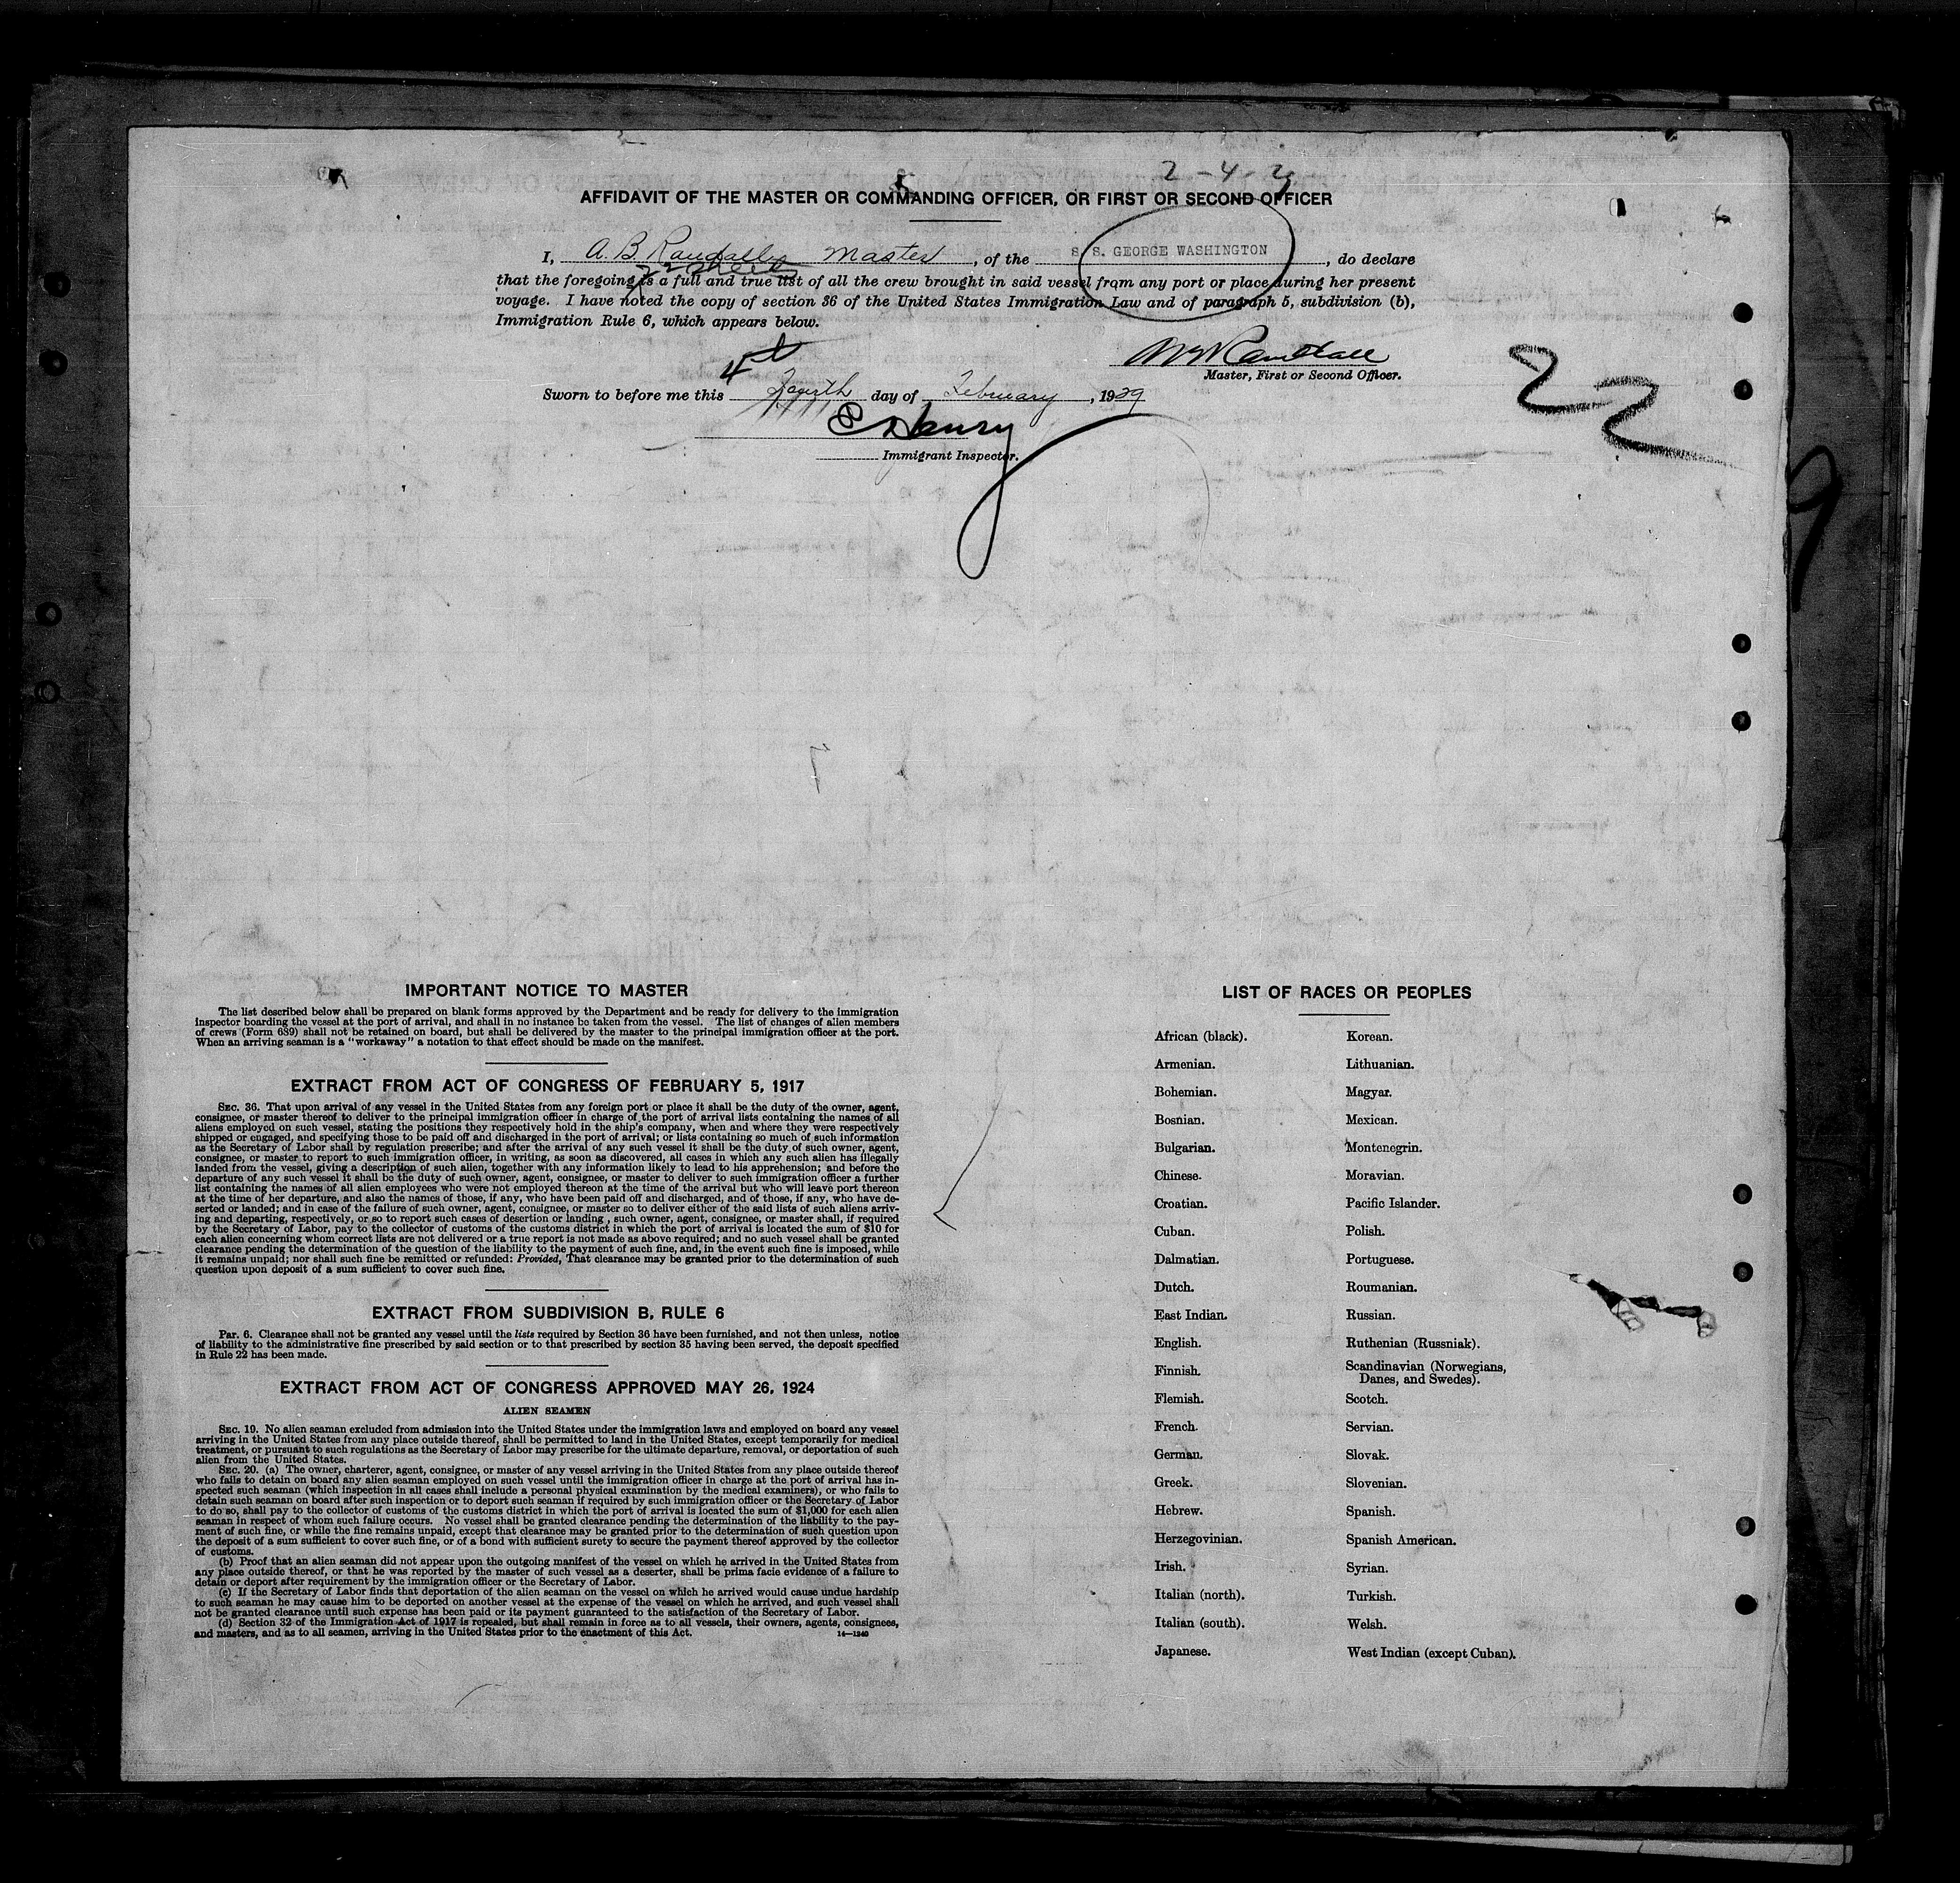 2-4-29
AFFIDAVIT OF THE MASTER OR COMMANDING OFFICER, OR FIRST OR SECOND OFFICER
I, A. B. Randall, Master, of the S. S. GEORGE WASHINGTON, do declare
22 sheets
that the foregoing is a full and true list of all the crew brought in said vessel from any port or place during her present
voyage. I have noted the copy of section 36 of the United States Immigration Law and of paragraph 5, subdivision (b),
Immigration Rule 6, which appears below.
Randall
Master, First or Second Officer.
4th
Sworn to before me this Fourth day of February, 1929
22
Immigrant Inspector.
9
IMPORTANT NOTICE TO MASTER
The list described below shall be prepared on blank forms approved by the Department and be ready for delivery to the immigration
inspector boarding the vessel at the port of arrival, and shall in no instance be taken from the vessel. The list of changes of alien members
of crews (Form 689) shall not be retained on board, but shall be delivered by the master to the principal immigration officer at the port.
When an arriving seaman is a "workaway" a notation to that effect should be made on the manifest.
EXTRACT FROM ACT OF CONGRESS OF FEBRUARY 5, 1917
SEC. 36. That upon arrival of any vessel in the United States from any foreign port or place it shall be the duty of the owner, agent,
consignee, or master thereof to deliver to the principal immigration officer in charge of the port of arrival lists containing the names of all
aliens employed on such vessel, stating the positions they respectively hold in the ship's company, when and where they were respectively
shipped or engaged, and specifying those to be paid off and discharged in the port of arrival; or lists containing so much of such information
as the Secretary of Labor shall by regulation prescribe; and after the arrival of any such vessel it shall be the duty of such owner, agent,
consignee, or master to report to such immigration officer, in writing, as soon as discovered, all cases in which any such alien has illegally
landed from the vessel, giving a description of such alien, together with any information likely to lead to his apprehension; and before the
departure of any such vessel it shall be the duty of such owner, agent, consignee, or master to deliver to such immigration officer a further
list containing the names of all alien employees who were not employed thereon at the time of the arrival but who will leave port thereon
at the time of her departure, and also the names of those, if any, who have been paid off and discharged, and of those, if any, who have de-
serted or landed; and in case of the failure of such owner, agent, consignee, or master so to deliver either of the said lists of such aliens arriv-
ing and departing, respectively, or so to report such cases of desertion or landing, such owner, agent, consignee, or master shall, if required
by the Secretary of Labor, pay to the collector of customs of the customs district in which the port of arrival is located the sum of $10 for
each alien concerning whom correct lists are not delivered or a true report is not made as above required; and no such vessel shall be granted
clearance pending the determination of the question of the liability to the payment of such fine, and, in the event such fine is imposed, while
it remains unpaid; nor shall such fine be remitted or refunded: Provided, That clearance may be granted prior to the determination of such
question upon deposit of a sum sufficient to cover such fine.
EXTRACT FROM SUBDIVISION B, RULE 6
Par. 6. Clearance shall not be granted any vessel until the lists required by Section 36 have been furnished, and not then unless, notice
of liability to the administrative fine prescribed by said section or to that prescribed by section 35 having been served, the deposit specified
in Rule 22 has been made.
EXTRACT FROM ACT OF CONGRESS APPROVED MAY 26, 1924
ALIEN SEAMEN
SEC. 19. No alien seaman excluded from admission into the United States under the immigration laws and employed on board any vessel
arriving in the United States from any place outside thereof, shall be permitted to land in the United States, except temporarily for medical
treatment, or pursuant to such regulations as the Secretary of Labor may prescribe for the ultimate departure, removal, or deportation of such
alien from the United States.
SEC. 20. (a) The owner, charterer, agent, consignee, or master of any vessel arriving in the United States from any place outside thereof
who fails to detain on board any alien seaman employed on such vessel until the immigration officer in charge at the port of arrival has in-
spected such seaman (which inspection in all cases shall include a personal physical examination by the medical examiners), or who fails to
detain such seaman on board after such inspection or to deport such seaman if required by such immigration officer or the Secretary of Labor
to do so, shall pay to the collector of customs of the customs district in which the port of arrival is located the sum of $1,000 for each alien
seaman in respect of whom such failure occurs. No vessel shall be granted clearance pending the determination of the liability to the pay-
ment of such fine, or while the fine remains unpaid, except that clearance may be granted prior to the determination of such question upon
the deposit of a sum sufficient to cover such fine, or of a bond with sufficient surety to secure the payment thereof approved by the collector
of customs.
(b) Proof that an alien seaman did not appear upon the outgoing manifest of the vessel on which he arrived in the United States from
any place outside thereof, or that he was reported by the master of such vessel as a deserter, shall be prima facie evidence of a failure to
detain or deport after requirement by the immigration officer or the Secretary of Labor.
(c) If the Secretary of Labor finds that deportation of the alien seaman on the vessel on which he arrived would cause undue hardship
to such seaman he may cause him to be deported on another vessel at the expense of the vessel on which he arrived, and such vessel shall
not be granted clearance until such expense has been paid or its payment guaranteed to the satisfaction of the Secretary of Labor.
(d) Section 32 of the Immigration Act of 1917 is repealed, but shall remain in force as to all vessels, their owners, agents, consignees,
and masters, and as to all seamen, arriving in the United States prior to the enactment of this Act.
14—1240
LIST OF RACES OR PEOPLES
African (black).
Armenian.
Bohemian.
Bosnian.
Bulgarian.
Chinese.
Croatian.
Cuban.
Dalmatian.
Dutch.
East Indian.
English.
Finnish.
Flemish.
French.
German.
Greek.
Hebrew.
Herzegovinian.
Irish.
Italian (north).
Italian (south).
Japanese.
Korean.
Lithuanian.
Magyar.
Mexican.
Montenegrin.
Moravian.
Pacific Islander.
Polish.
Portuguese.
Roumanian.
Russian.
Ruthenian (Russniak).
Scandinavian (Norwegians,
Danes, and Swedes).
Scotch.
Servian.
Slovak.
Slovenian.
Spanish.
Spanish American.
Syrian.
Turkish.
Welsh.
West Indian (except Cuban).